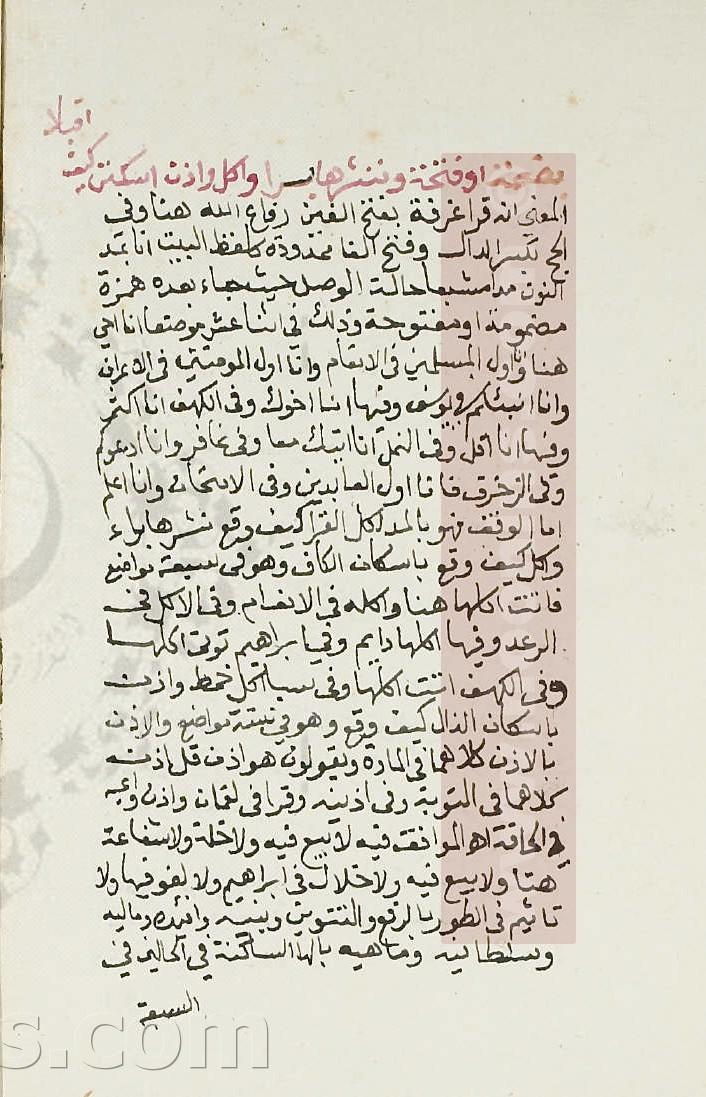 اقبلا
بضمة او فتحة وننشرها برا واكل واذن اسكنن كيف
المعنى انه قرا غرفة بفتح الغين دفاع الله هنا وفى
الحج بكسر الدال وفتح الفا ممدودة كلفظ البيت انا بمد
النون مدا مشبعا حالة الوصل حيث جاء بعده همزة
مضمومة او مفتوحة وذلك فى اثنا عشر موضعا انا احى
هنا وانا اول المسلمين فى الانعام وانا اول المومنين فى الاعراف
وانا انبئكم فى يوسف وفيها انا اخوك وفى الكهف انا اكثر
وفيها انا اقل وفى النمل انا اتيك معا وفى غافر وانا ادعوكم
وفى الزخرف فانا اول العابدين وفى الامتحان وانا اعلم
اما الوقف فهو بالمد لكل القرا كيف وقع ننشرها براء
واكل كيف وقع باسكان الكاف وهو فى سبعة مواضع
فاتت اكلها هنا واكله فى الانعام وفى الاكل فى
الرعد وفيها اكلها دايم وفى ابراهيم توتى اكلها
وفى الكهف اتت اكلها وفى سبا اكل خمط واذن
باسكان الذال كيف وقع وهو فى ستة مواضع والاذن
بالاذن كلاهما فى المايدة ويقولون هو اذن قل اذن
كلاهما فى التوبة وفى اذنيه وقرا فى لقمان واذن واعية
فى الحاقة اهـ الموافقة فيه لا بيع فيه ولا خلة ولا شفاعة
هنا ولا بيع فيه ولا خلال فى ابراهيم ولا لغو فيها ولا
تاثيم فى الطور بالرفع والتنوين وماليه
وسلطانيه وماهيه بالها الساكنة فى الحالين فى
السبعة
s.com